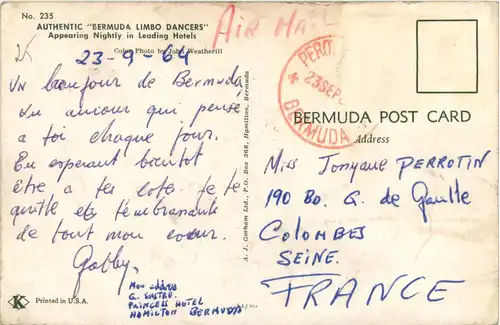 No. 235
AUTHENTIC "BERMUDA LIMBO DANCERS"
Appearing Nightly in Leading Hotels
Color Photo by John Weatherill
AIR MAIL
23-9-64
Un bonjour de Bermuda
du amour qui pense
a toi chaque jour.
En esperant bientot
être a tes cotes je te
quitte et t'embrassant
de tout mon coeur.
Gabby.
Mon address
G.
PRINCESS HOTEL
HAMILTON BERMUDA
Printed in U.S.A.
K
A. J. Gorham Ltd., P.O. Box 368, Hamilton, Bermuda
PERO
23 SEP
BERMUDA
BERMUDA POST CARD
Address
Miss Jonyane PERROTIN
190 Bo. G. de Gaulle
COLOMBES
SEINE.
FRANCE